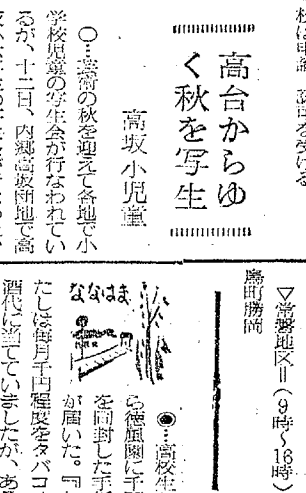 高台からゆ
く秋を写生
高坂小児童
〇…芸術の秋を迎えて各地で小
学校児童の写生会が行なわれてい
るが、十二日、内郷高坂団地で高
▽常磐地区＝（9時〜16時）
島町勝岡
ななはま
◉…高校生
ら徳風園に千
を同封した手
が届いた。『わ
たしは毎月千円程度をタバコ
酒代に当てていましたが、あ